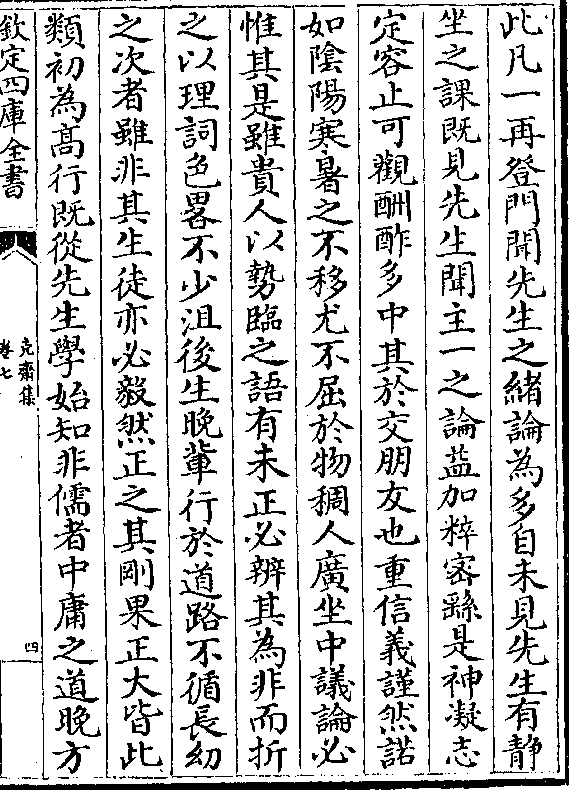 此凡一再登門聞先生之緒論為多自未見先生有静
坐之課既見先生聞主一之論益加粹宻繇是神凝志
定容止可觀酬酢多中其於交朋友也重信義謹然諾
如隂陽寒暑之不移尤不屈於物稠人廣坐中議論必
惟其是雖貴人以勢臨之語有未正必辨其為非而折
之以理詞色畧不少沮後生晩輩行於道路不循長幼
之次者雖非其生徒亦必毅然正之其剛果正大皆此
類初為髙行既從先生學始知非儒者中庸之道晩方
欽定四庫全書
克齋集
卷七
四